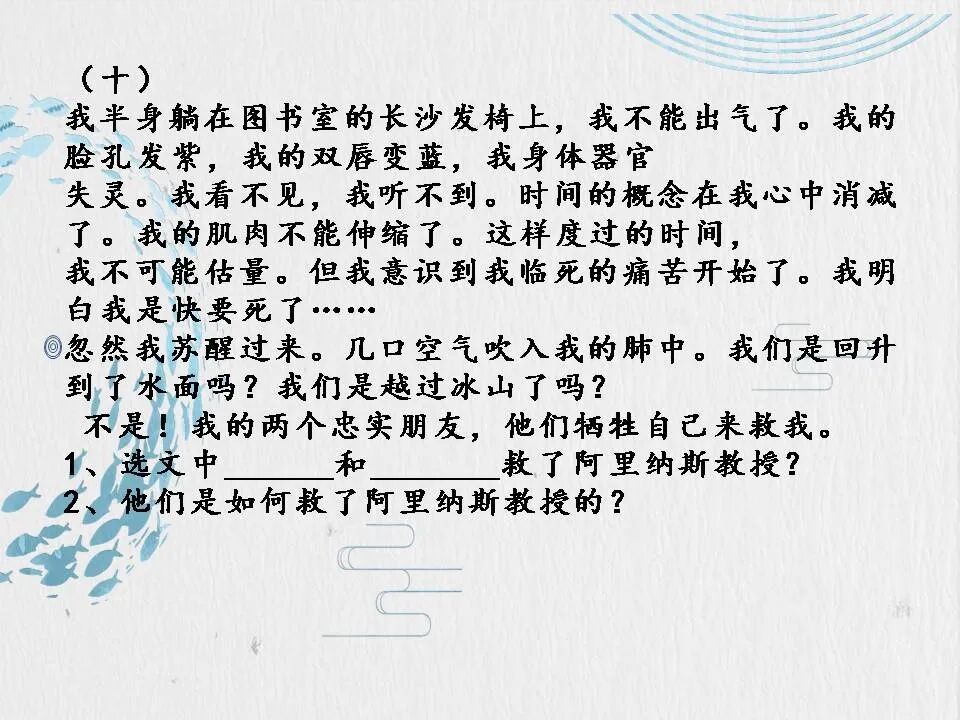 （十）
我半身躺在图书室的长沙发椅上，我不能出气了。我的
脸孔发紫，我的双唇变蓝，我身体器官
失灵。我看不见，我听不到。时间的概念在我心中消减
了。我的肌肉不能伸缩了。这样度过的时间，
我不可能估量。但我意识到我临死的痛苦开始了。我明
白我是快要死了……
忽然我苏醒过来。几口空气吹入我的肺中。我们是回升
到了水面吗？我们是越过冰山了吗？
不是！我的两个忠实朋友，他们牺牲自己来救我。
1、选文中______和_______救了阿里纳斯教授？
2、他们是如何救了阿里纳斯教授的？